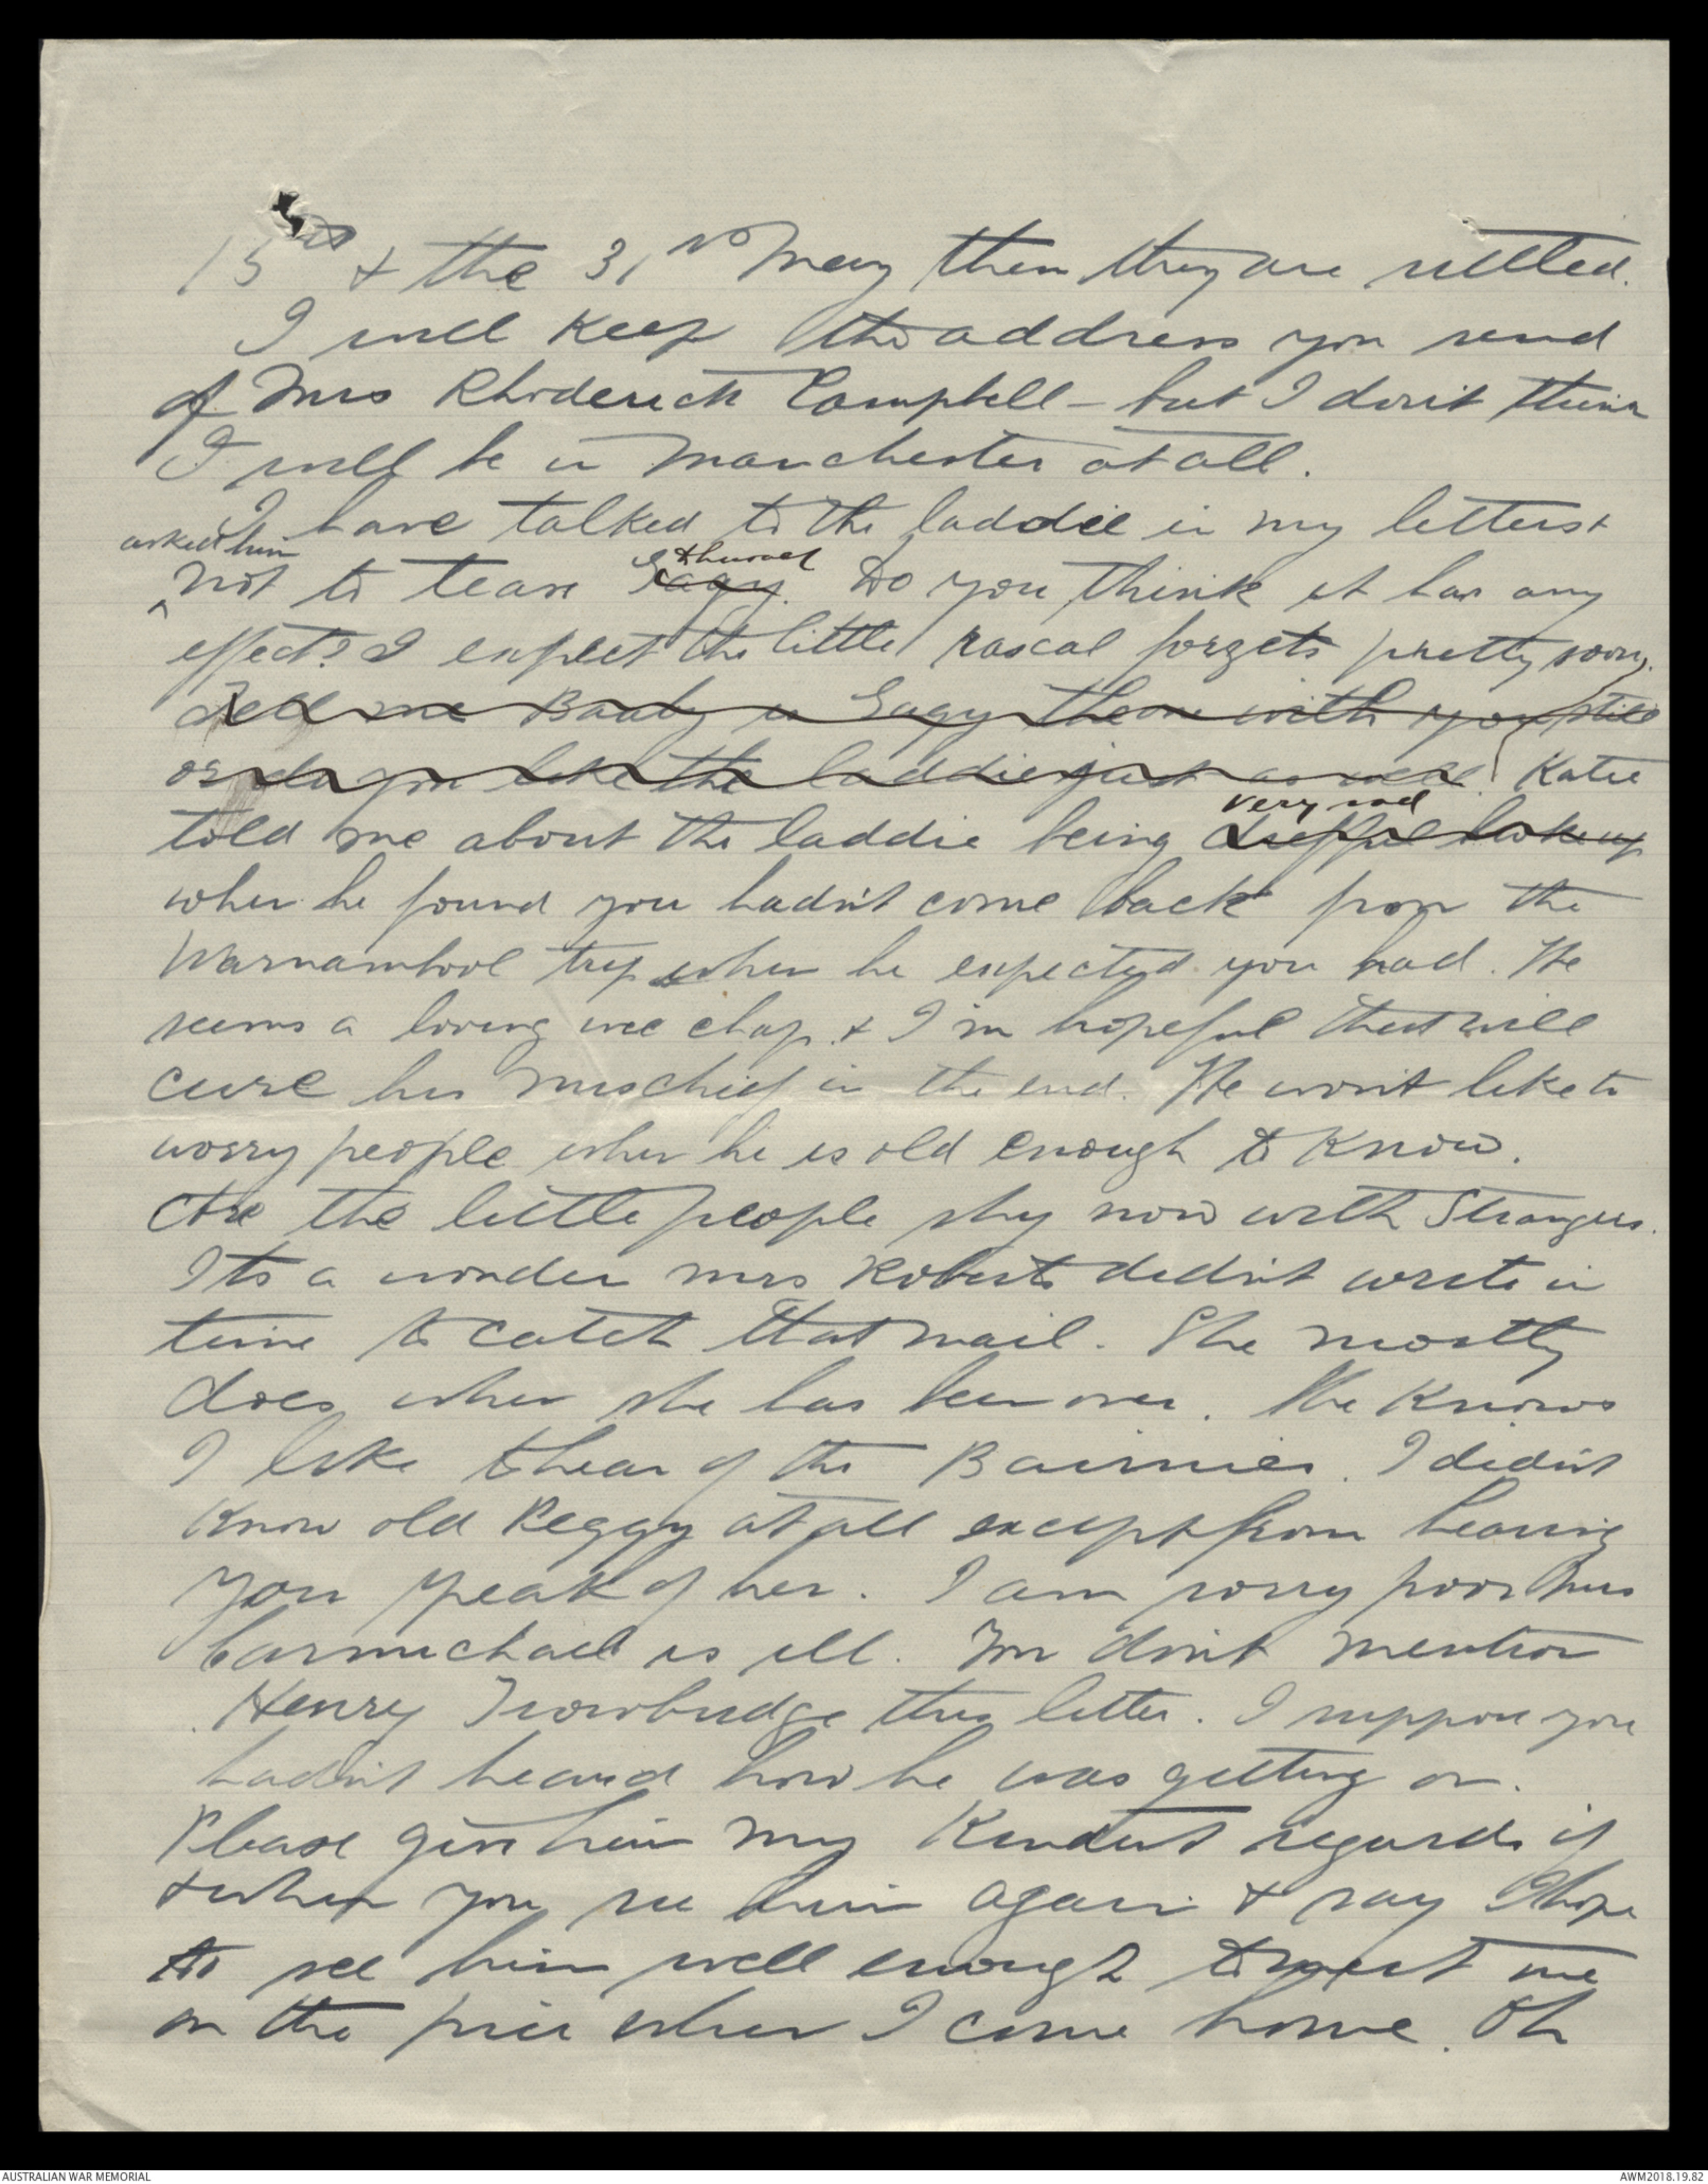 15th & the 31st May then they are settled.
I will keep the address you send
of Mrs Rhoderick Campbell - but I don't think
I will be in Manchester at all.
I have talked to the laddie in my letters &
asked him
not to tease Gagy. & hurael Do you think it has any
effect? I expect the little rascal forgets pretty soon.
Tell me Baaby is Gagy there with you still
or do you like the laddie just as well? Katie
very sad
told me about the laddie being up
when he found you hadn't come back from the
Warnambool trip when he expected you had. He
seems a loving wee chap & I'm hopeful that will
cure his mischief in the end. He won't like to
worry people when he is old enough to know.
Are the little people shy now with Strangers.
Its a wonder Mrs Roberts didn't write in
time to catch that mail. She mostly
does when she has been over. She knows
I like to hear of the Bairnies. I didn't
know old Peggy at all except from hearing
you speak of her. I am sorry poor Mrs
Carmichael is ill. You don't mention
Henry Trowbridge this letter. I suppose you
hadn't heard how he was getting on.
Please give him my kindest regards if
& when you see him again & say I hope
to see him well enough to meet me
on the pier when I come home. Oh
AUSTRALIAN WAR MEMORIAL
AWM2018.19.82